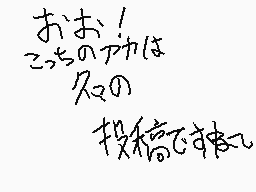 おお!
こっちのアカは
久々の
投稿ですね～